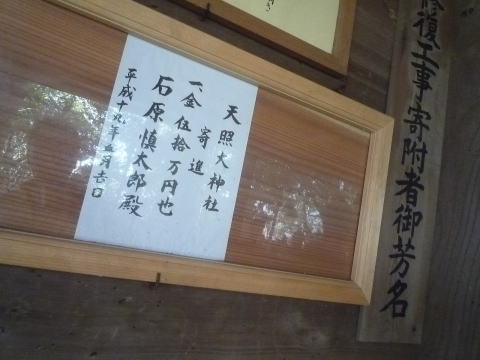 修復工事寄附者御芳名
天照大神社
寄進
一、金 伍拾万円也
石原慎太郎殿
平成十九年五月吉日